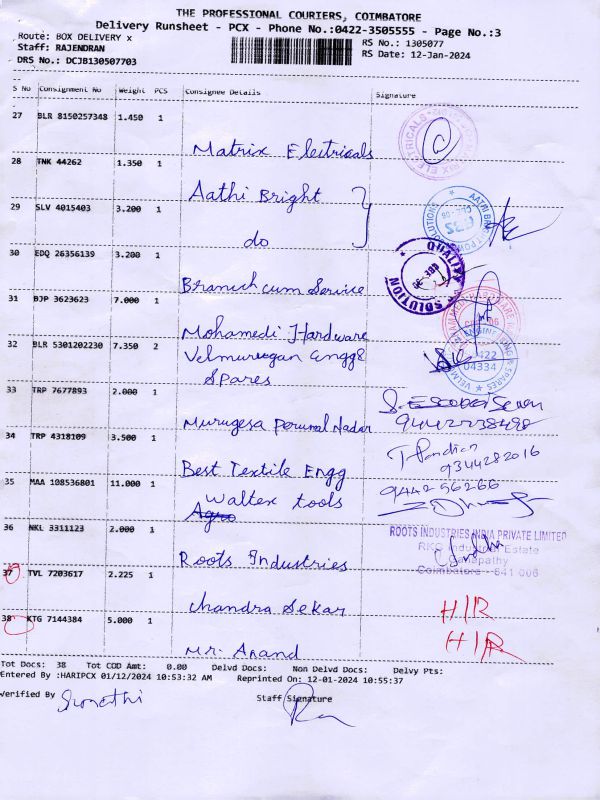 THE PROFESSIONAL COURIERS, COIMBATORE
Delivery Runsheet - PCX - Phone No.:0422-3505555 - Page No.:3
Route: BOX DELIVERY x
RS No.: 1305077
Staff: RAJENDRAN
RS Date: 12-Jan-2024
DRS No.: DCJB130507703
S No Consignment No Weight PCS Consignee Details Signature
27 BLR 8150257348 1.450 1
Matrix Electricals
28 TNK 44262 1.350 1
Aathi Bright
29 SLV 4015403 3.200 1
do
30 EDQ 26356139 3.200 1
QUALITY SOLUTION
Branch cum Service
31 BJP 3623623 7.000 1
Mohamedi Hardware
32 BLR 5301202230 7.350 2
Velmurugan Engg &
Spares
33 TRP 7677893 2.000 1
Murugesa Perumal Nadar
34 TRP 4318109 3.500 1
T. Pandian
9344282016
Best Textile Engg
35 MAA 108536801 11.000 1
944256266
Waltex tools
Agro
36 NKL 3311123 2.000 1
ROOTS INDUSTRIES INDIA PRIVATE LIMITED
Industrial Estate
Coimbatore - 641 006
Roots Industries
37 TVL 7203617 2.225 1
Chandra Sekar
H/R
38 KTG 7144384 5.000 1
Mr. Anand
H/R
Tot Docs: 38 Tot COD Amt: 0.00 Delvd Docs: Non Delvd Docs: Delvy Pts:
Entered By :HARIPCX 01/12/2024 10:53:32 AM Reprinted On: 12-01-2024 10:55:37
Verified By
Staff Signature